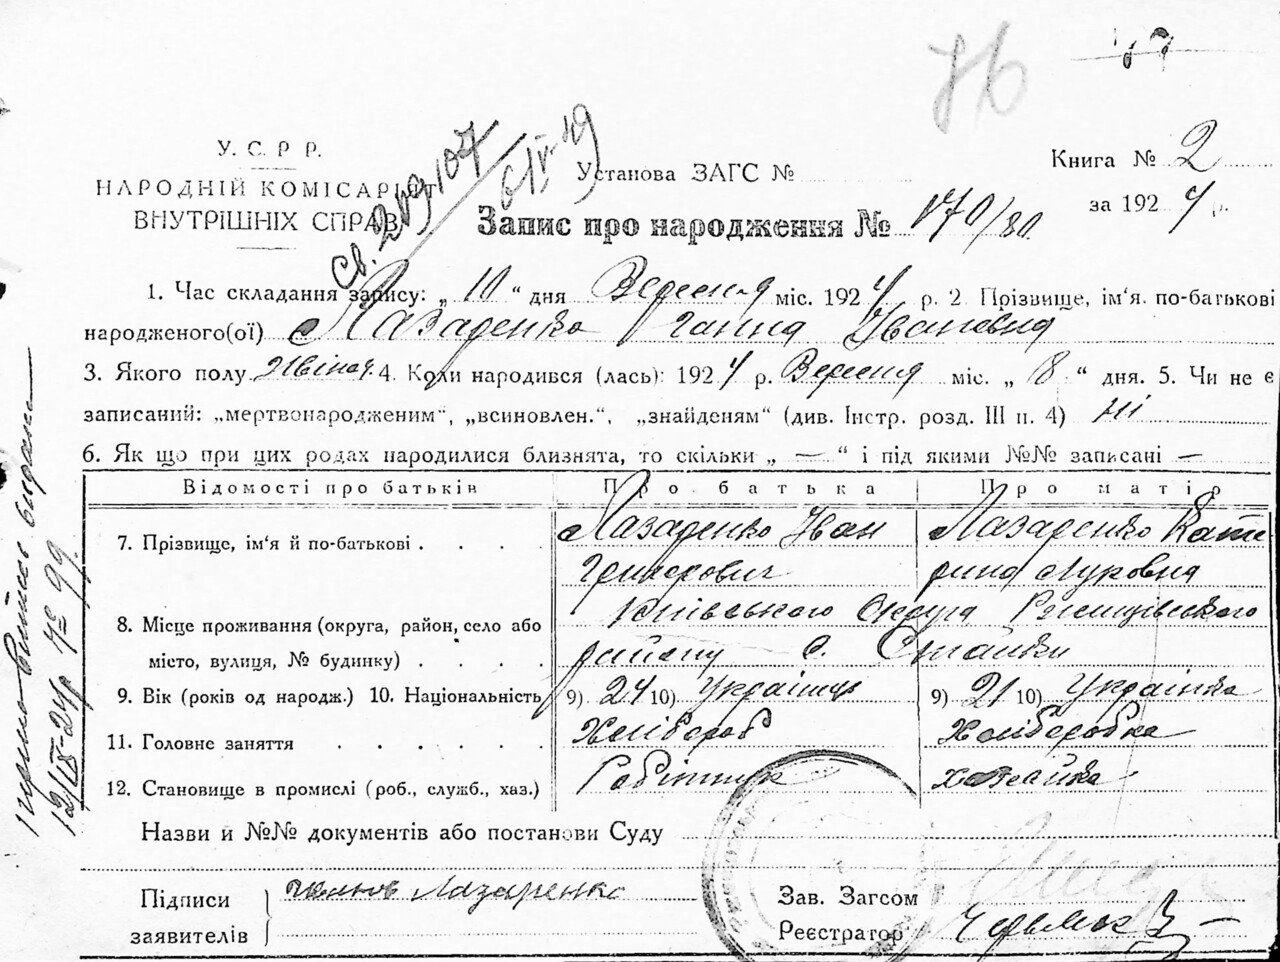 76
У. С. Р Р.
НАРОДНІЙ КОМІСАРІЯТ
ВНУТРІШНІХ СПРАВ
Св. 209107
6/V-49
Установа ЗАГС №
Книга № 2
за 1924 р.
Запис про народження № 170/80
1. Час складання запису: „ 10 “ дня Вересня міс. 1924 р. 2 Прізвище, ім'я. по-батькові
народженого(ої) Лазаренко Ганна Івановна
3. Якого полу Жіноч. 4. Коли народився (лась): 1924 р. Вересня міс. „ 8 “ дня. 5. Чи не є
записаний: „мертвонародженим“, „всиновлен.“, „знайденям“ (див. Інстр. розд. III п. 4) Ні
6. Як що при цих родах народилися близнята, то скільки „ — “ і під якими №№ записані —
Відомості про батьків Про батька Про матір
7. Прізвище, ім'я й по-батькові . . . . Лазаренко Іван Лазаренко Кате
Григорович рина Луковна
8. Місце проживання (округа, район, село або Київського Округа Ржищівського
місто, вулиця, № будинку) . . . . району с. Стайки
9. Вік (років од народж.) 10. Національність 9) 24 10) Українець 9) 21 10) Українка
11. Головне заняття . . . . . Хлібороб Хліборобка
12. Становище в промислі (роб., служб., хаз.) Робітник хазяйка
Назви й №№ документів або постанови Суду
Підписи
заявителів
Лазаренко
Зав. Загсом
Реєстратор
12/IX-24р. № 99.